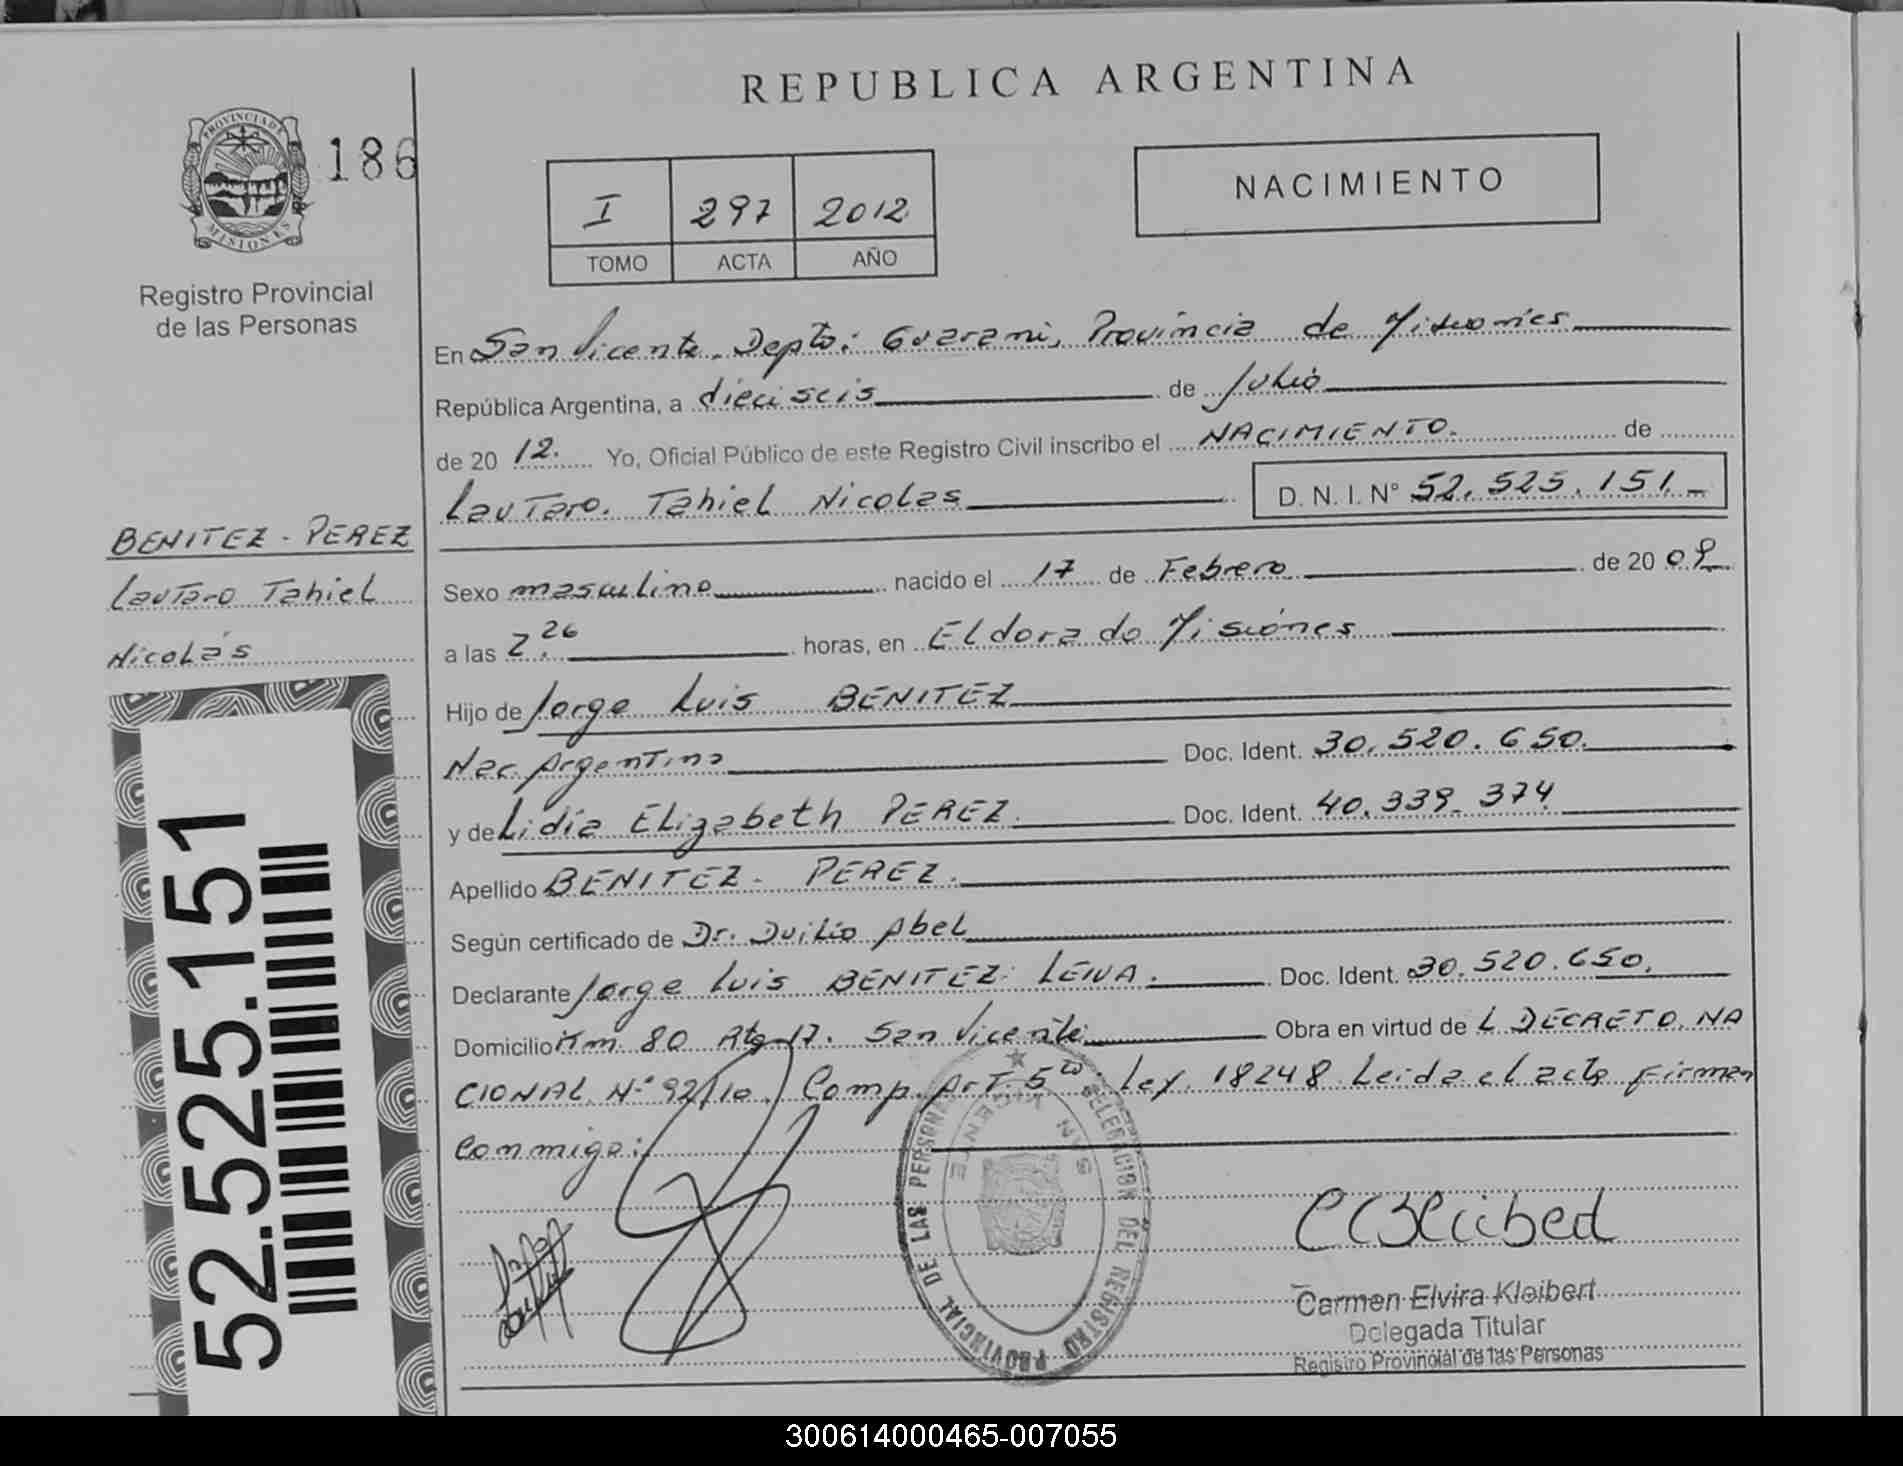 REPUBLICA ARGENTINA
PROVINCIA DE
MISIONES
186
Registro Provincial
de las Personas
I 297 2012
TOMO ACTA AÑO
NACIMIENTO
En San Vicente. Depto: Guarani, Provincia de Misiones
República Argentina, a dieciseis de Julio
de 2012. Yo, Oficial Público de este Registro Civil inscribo el NACIMIENTO. de
Lautaro. Tahiel Nicolas D. N. I. N° 52.525.151.-
BENITEZ - PEREZ
Lautaro Tahiel
Nicolás
Sexo masculino nacido el 17 de Febrero de 2009
a las 2.26 horas, en Eldorado Misiones
Hijo de Jorge Luis BENITEZ
Nac. Argentino Doc. Ident. 30.520.650.
y de Lidia Elizabeth PEREZ. Doc. Ident. 40.339.374
Apellido BENITEZ - PEREZ.
Según certificado de Dr. Duilio Abel
Declarante Jorge Luis BENITEZ LEIVA. Doc. Ident. 30.520.650.
Domicilio Km 80 Rta 17. San Vicente Obra en virtud de L DECRETO NA
CIONAL N° 92/10. Comp. Art. 5to. Ley 18248 Leida el acta firman
Conmigo:
DELEGACION DEL REGISTRO PROVINCIAL DE LAS PERSONAS
SAN VICENTE
Carmen Elvira Kleibert
Delegada Titular
Registro Provincial de las Personas
52.525.151
300614000465-007055